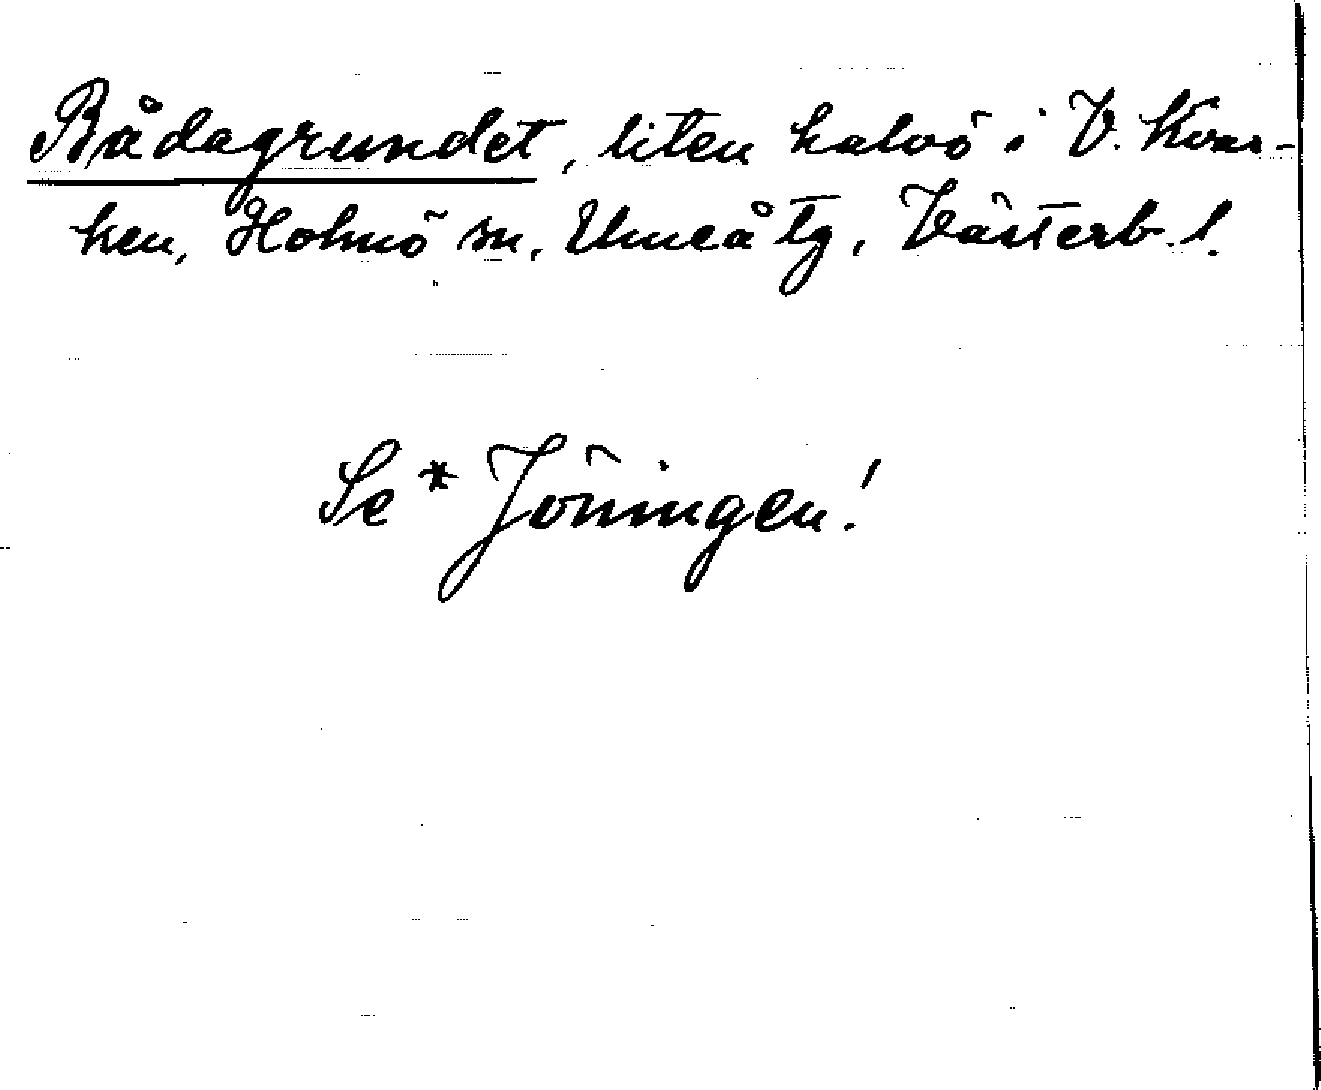 Bådagrundet, liten halvö i V. Kvar-
ken, Holmö sn, Umeå tg, Västerb. l.
Se * Jöningen!